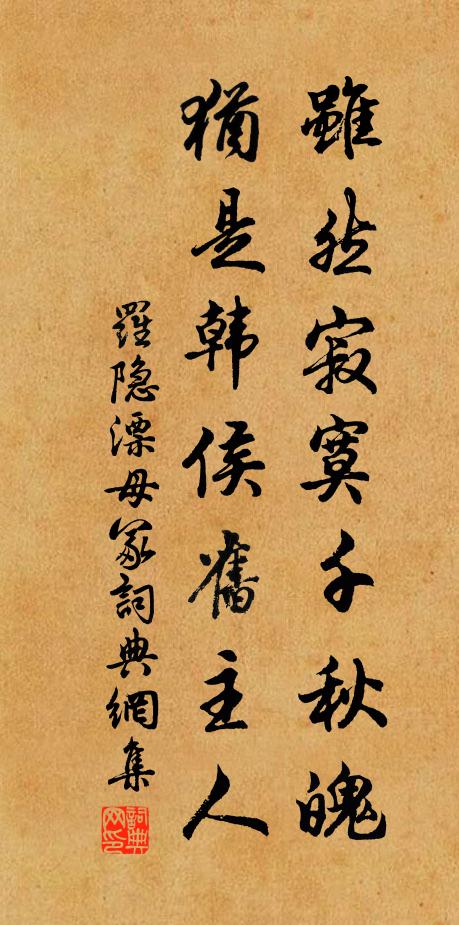 雖然寂寞千秋魄
猶是韩侯舊主人
羅隐漂母冢詞典網集
詞典网印